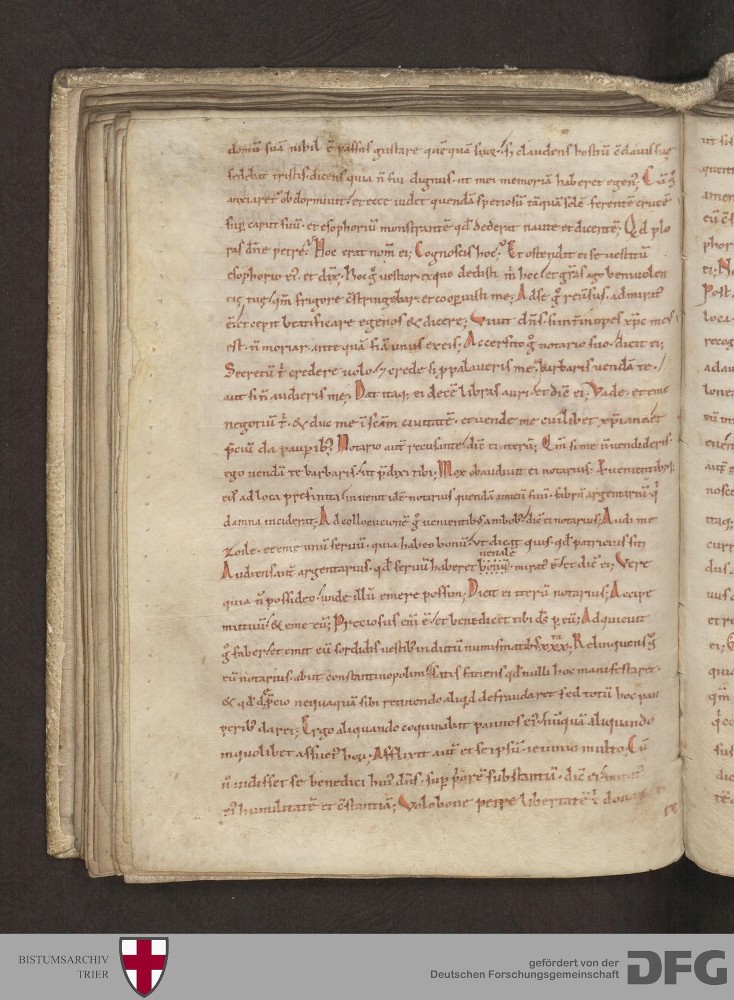 domū suā nihil ē passus gustare quē quā sed claudens hostiū
sedebat tristis dicens quia n̄ fui dignus ut mei memoriā haberet egenꝰ; Cū gͦ
anxiaretᷣ obdormiuit et ecce uidet quendā speciosū tāquā solē ferentē crucē
sup caput suū et esophoriū monstrantē qd̄ dederat naute et dicentē; Qd̄ plo
ras dn̄e petre? Hoc erat nom̄ ei; Cognoscis hoc? Et ostendit ei se uestitū
esophorio et dix; Hoc gͦ uestior ex quo dedisti m̄ hoc et grās ago beniuolen
tię tuę qm̄ frigore cstringebar et coopuisti me; Ad se gͦ reuersus admirat
ē et cepit beatificare egenos & dicere; Viuit dn̄s si inopes xp̄c meꝰ
est n̄ moriar ante quā fiā unus ex eis; Accersito gͦ notario suo dicit ei;
Secretū t̄ credere uolo crede si ppalaueris me barbaris uendā te
aut si n̄ audieris me; Dat itaq ei decē libras auri et dic̄ ei; Vade et eme
negotiū t̄ & duc me ī scām ciuitatē et uende me cuilibet xp̄iano et
p̄ciū da paupibꝰ; Notario aut̄ recusante dic̄ ei iterū; Qm̄ si me n̄ uendideris
ego uendā te barbaris ut p̄dixi tibi; Mox obaudiuit ei notarius; Euenientibꝰ
eis ad loca prefinita inuenit idē notarius quendā amicū suū fabrū argentariū q
damna inciderat; Ad collocucionē gͦ uenientibꝰ ambobꝰ dic̄ ei notarius; Audi me
zoile et eme unū seruū quia habeo bonū ut dicat quis qd̄ patricius sit;
uenalē
Audiens aut̄ argentarius qd̄ seruū haberet bonū miratᷣ ē et dic̄ ei; Vere
quia n̄ possideo unde illū emere possim; Dicit ei iterū notarius; Accipe
mutuū & eme eū; Preciosus eni ē et benedicet tibi ds̄ p eū; Adquieuit
gͦ faber et emit eū sordidis uestibꝰ indutū numismatibꝰ xxx; Relinquens gͦ
eū notarius abiit constantinopolim satis faciens qd̄ nulli hoc manifestaret
& qd̄ de p̄cio nequaquā sibi retinendo aliqd defraudaret sed totū hoc pau
peribꝰ daret; Ergo aliquando coquinabat pannos eiꝰ nūquā aliquando
in quolibet assuetꝰ hoꝝ; Afflixit aut̄ et se ipsū ieiunio multo; Cū
u uidisset se benedici huiꝰ dn̄s sup p̄orē substantiā dic̄ ei
eiꝰ humilitatē et cstantiā; Volo bone petre libertatē t̄